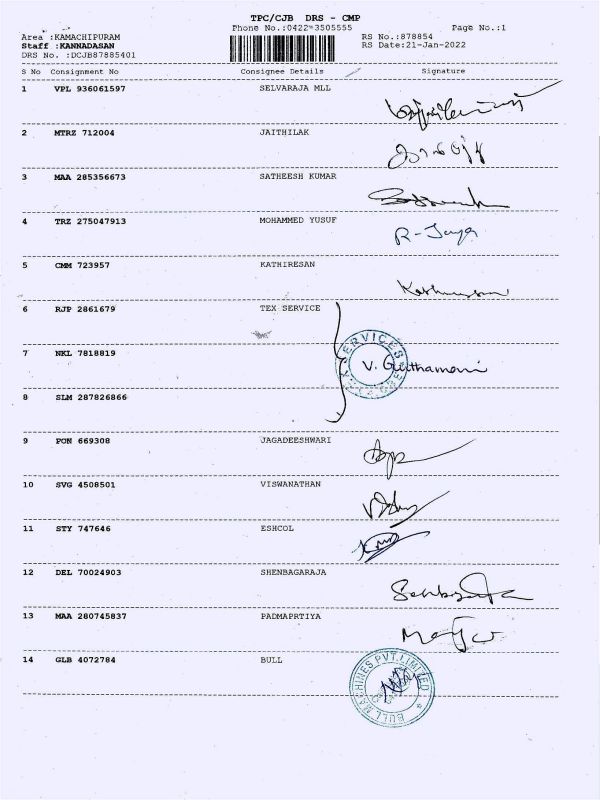 TPC/CJB DRS - CMP
Phone No.:0422-3505555 Page No.:1
Area :KAMACHIPURAM RS No.:878854
Staff :KANNADASAN RS Date:21-Jan-2022
DRS No. :DCJB87885401
S No Consignment No Consignee Details Signature
1 VPL 936061597 SELVARAJA MLL
2 MTRZ 712004 JAITHILAK
3 MAA 285356673 SATHEESH KUMAR
4 TRZ 275047913 MOHAMMED YUSUF
R-Jaya
5 CMM 723957 KATHIRESAN
6 RJP 2861679 TEX SERVICE
SERVICES
7 NKL 7818819
8 SLM 287826866
9 PON 669308 JAGADEESHWARI
10 SVG 4508501 VISWANATHAN
11 STY 747646 ESHCOL
12 DEL 70024903 SHENBAGARAJA
13 MAA 280745837 PADMAPRTIYA
14 GLB 4072784 BULL
BULL MACHINES PVT. LIMITED